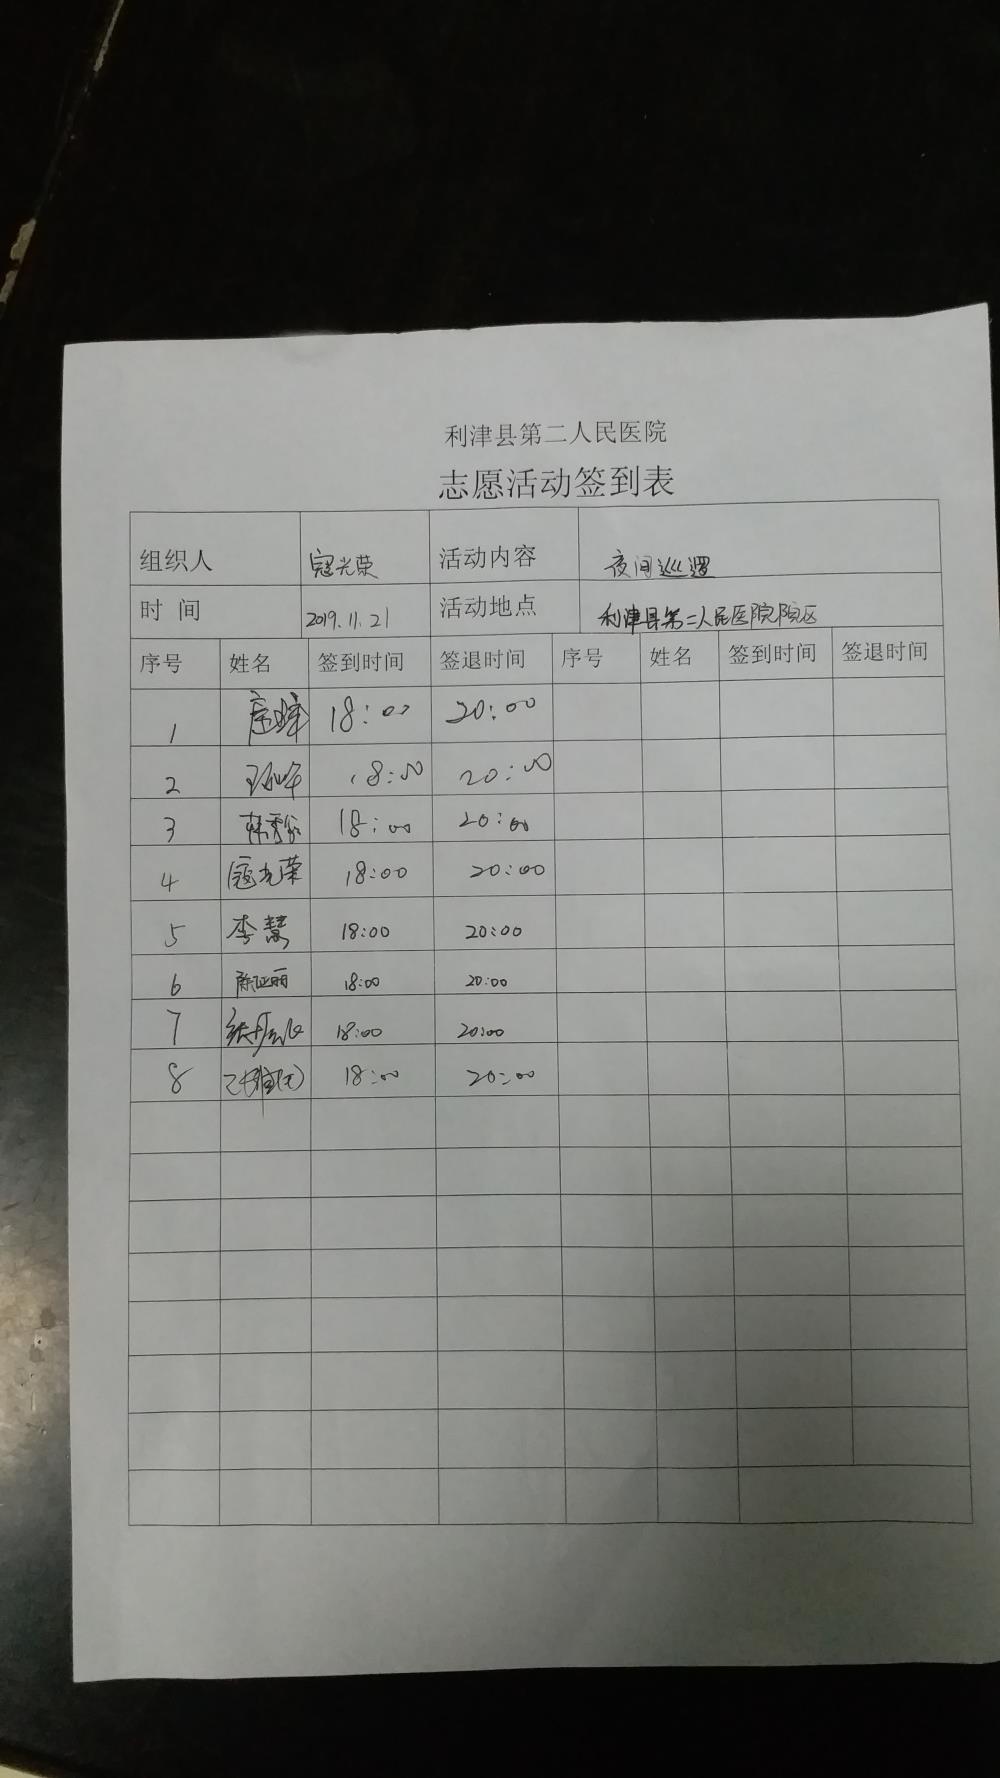 利津县第二人民医院
志愿活动签到表
组织人 寇光荣 活动内容 夜间巡逻
时 间 2019.11.21 活动地点 利津县第二人民医院院区
序号 姓名 签到时间 签退时间 序号 姓名 签到时间 签退时间
1 18:00 20:00
2 18:00 20:00
3 18:00 20:00
4 寇光荣 18:00 20:00
5 李慧 18:00 20:00
6 18:00 20:00
7 18:00 20:00
8 18:00 20:00